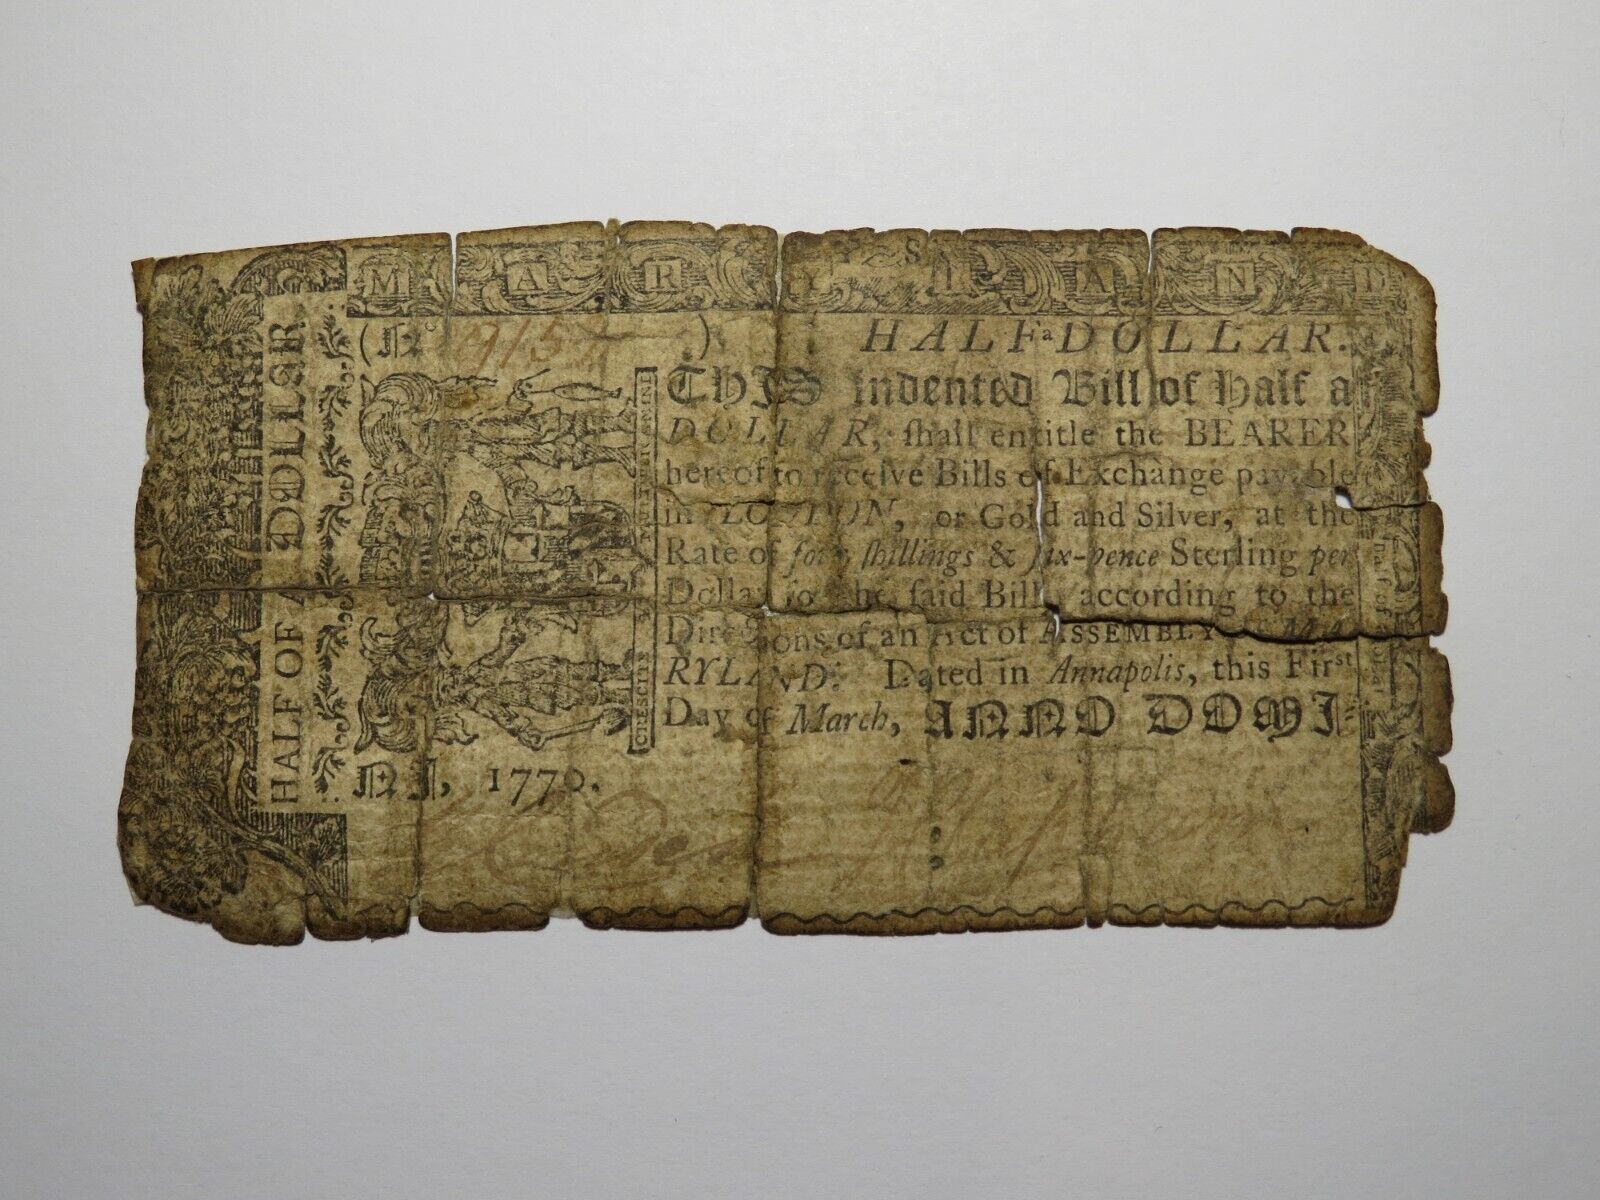 MARYLAND
S
HALF OF A DOLLAR
(No 9152 )
HALF a DOLLAR.
THIS indented Bill of Half a
DOLLAR, ſhall entitle the BEARER
hereof to receive Bills of Exchange payable
in LONDON, or Gold and Silver, at the
Rate of four ſhillings & ſix-pence Sterling per
Dollar for the ſaid Bill, according to the
Directions of an Act of ASSEMBLY of MA
RYLAND. Dated in Annapolis, this Firſt
Day of March, ANNO DOMI-
NI, 1770.
CRESCITE & MULTIPLICAMINI